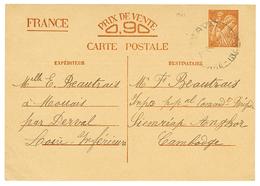 FRANCE
PRIX DE VENTE
0,90
CARTE POSTALE
EXPÉDITEUR
DESTINATAIRE
Melle E. Beautrais
à Mouais
par Derval
Loire Inférieure
Mr F. Beautrais
Insp. ppal
Siemréap Angkor
Cambodge